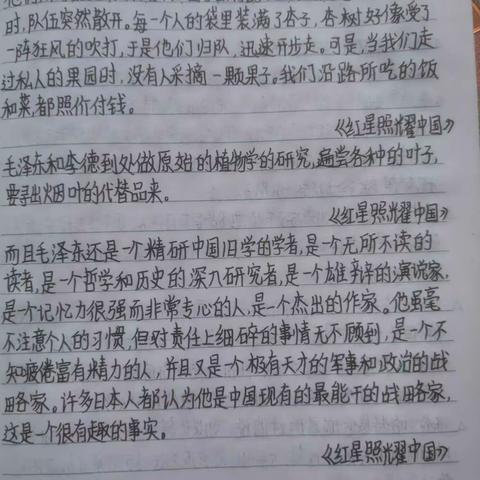 时,队伍突然散开。每一个人的袋里装满了杏子,杏树好像受了
一阵狂风的吹打,于是他们归队,迅速开步走。可是,当我们走
过私人的果园时,没有人采摘一颗果子。我们沿路所吃的饭
和菜都照价付钱。
《红星照耀中国》
毛泽东和李德到处做原始的植物学的研究,遍尝各种的叶子,
要寻出烟叶的代替品来。
《红星照耀中国》
而且毛泽东还是一个精研中国旧学的学者,是一个无所不读的
读者,是一个哲学和历史的深入研究者,是一个雄辩的演说家,
是一个记忆力很强而非常专心的人,是一个杰出的作家。他虽毫
不注意个人的习惯,但对责任上细碎的事情无不顾到,是一个不
知疲倦富有精力的人,并且又是一个极有天才的军事和政治的战
略家。许多日本人都认为他是中国现有的最能干的战略家,
这是一个很有趣的事实。
《红星照耀中国》